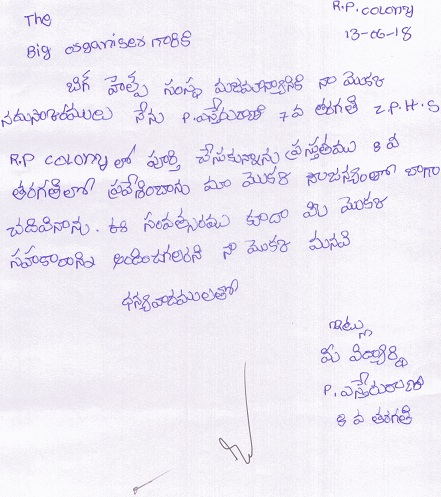 R.P. colony
13-06-18
The
Big organiser గారికి
బిగ్ హెల్ప్ సంస్థ యాజమాన్యానికి నా మొదటి
నమస్కారములు నేను P. ఎస్తేరురాణి 7 వ తరగతి Z.P.H.S
R.P colony లో పూర్తి చేసుకున్నాను ప్రస్తుతము 8 వ
తరగతిలో ప్రవేశించాను మీ యొక్క సహాయంతో బాగా
చదివినాను. ఈ సంవత్సరము కూడా మీ యొక్క
సహకారాన్ని అందించగలరని నా యొక్క మనవి
ధన్యవాదములతో
ఇట్లు
మీ విద్యార్థి
P. ఎస్తేరురాణి
8 వ తరగతి